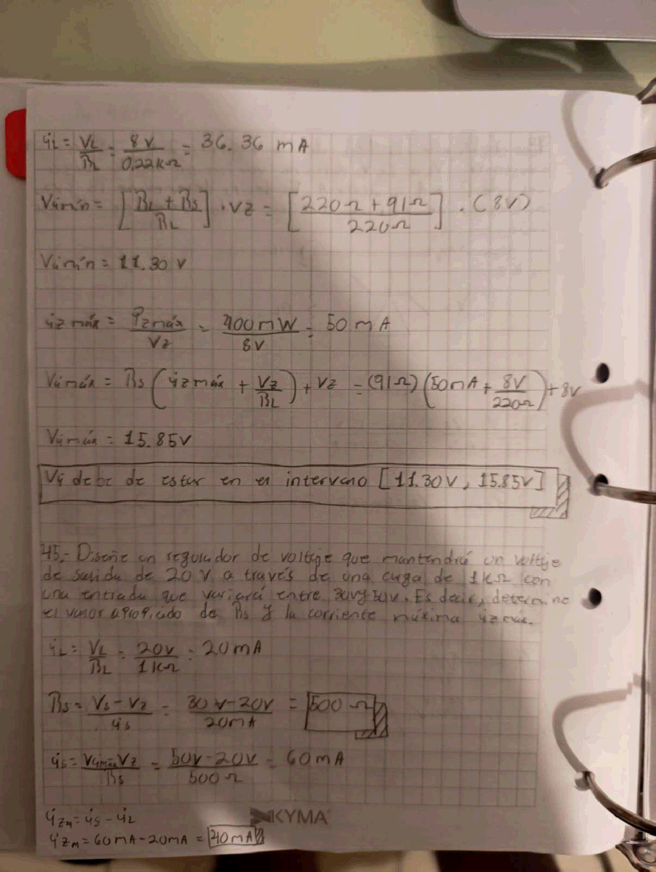 iL = VL/RL = 8V/0.22KΩ = 36.36 mA
Vimín = [RL + Rs/RL] · Vz = [220Ω + 91Ω/220Ω] · (8V)
Vimín = 11.30 V
iz máx = Pzmáx/Vz = 400mW/8V = 50 mA
Vimáx = Rs (izmáx + Vz/RL) + Vz = (91Ω) (50mA + 8V/220Ω) + 8V
Vimáx = 15.85V
Vi debe de estar en el intervalo [11.30V, 15.85V]
45.- Diseñe un regulador de voltaje que mantendrá un voltaje
de salida de 20 V a través de una carga de 1KΩ con
una entrada que variará entre 30V y 50V. Es decir, determine
el valor apropiado de Rs y la corriente máxima izmáx.
iL = VL/RL = 20V/1KΩ = 20mA
Rs = Vs - Vz/is = 30V-20V/20mA = 500Ω
is = Vimáx Vz/Rs = 50V-20V/500Ω = 60mA
izm = is - iL
izm = 60mA-20mA = 40mA
KYMA